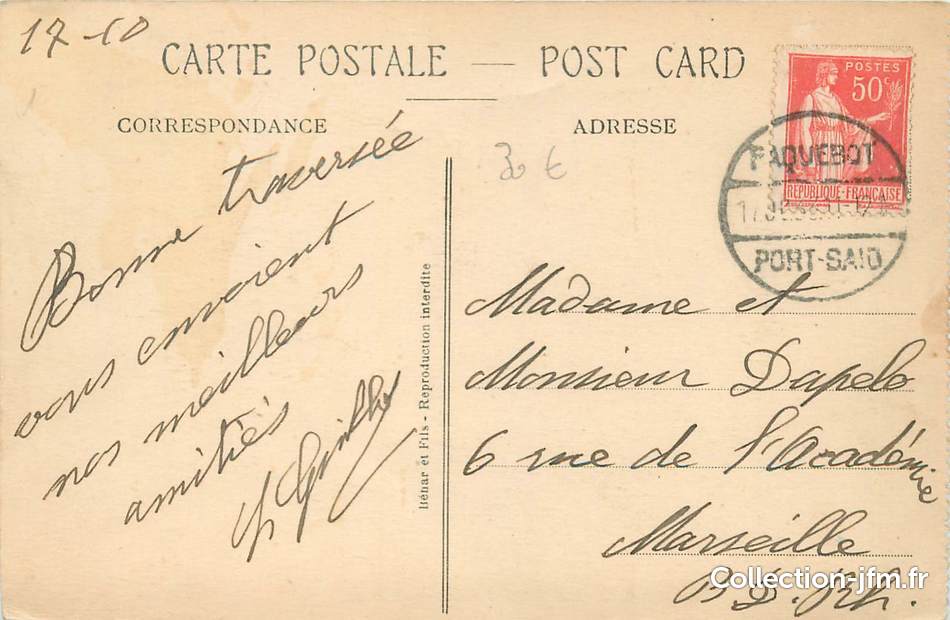 17-10
CARTE POSTALE — POST CARD
CORRESPONDANCE
ADRESSE
Bonne traversée
vous envoient
nos meilleurs
amitiés
30 €
POSTES
50c
RÉPUBLIQUE-FRANÇAISE
PAQUEBOT
PORT-SAID
Bénar et Fils - Reproduction interdite
Madame et
Monsieur Dapelo
6 rue de l'Académie
Marseille
B.D.Rh.
Collection-jfm.fr